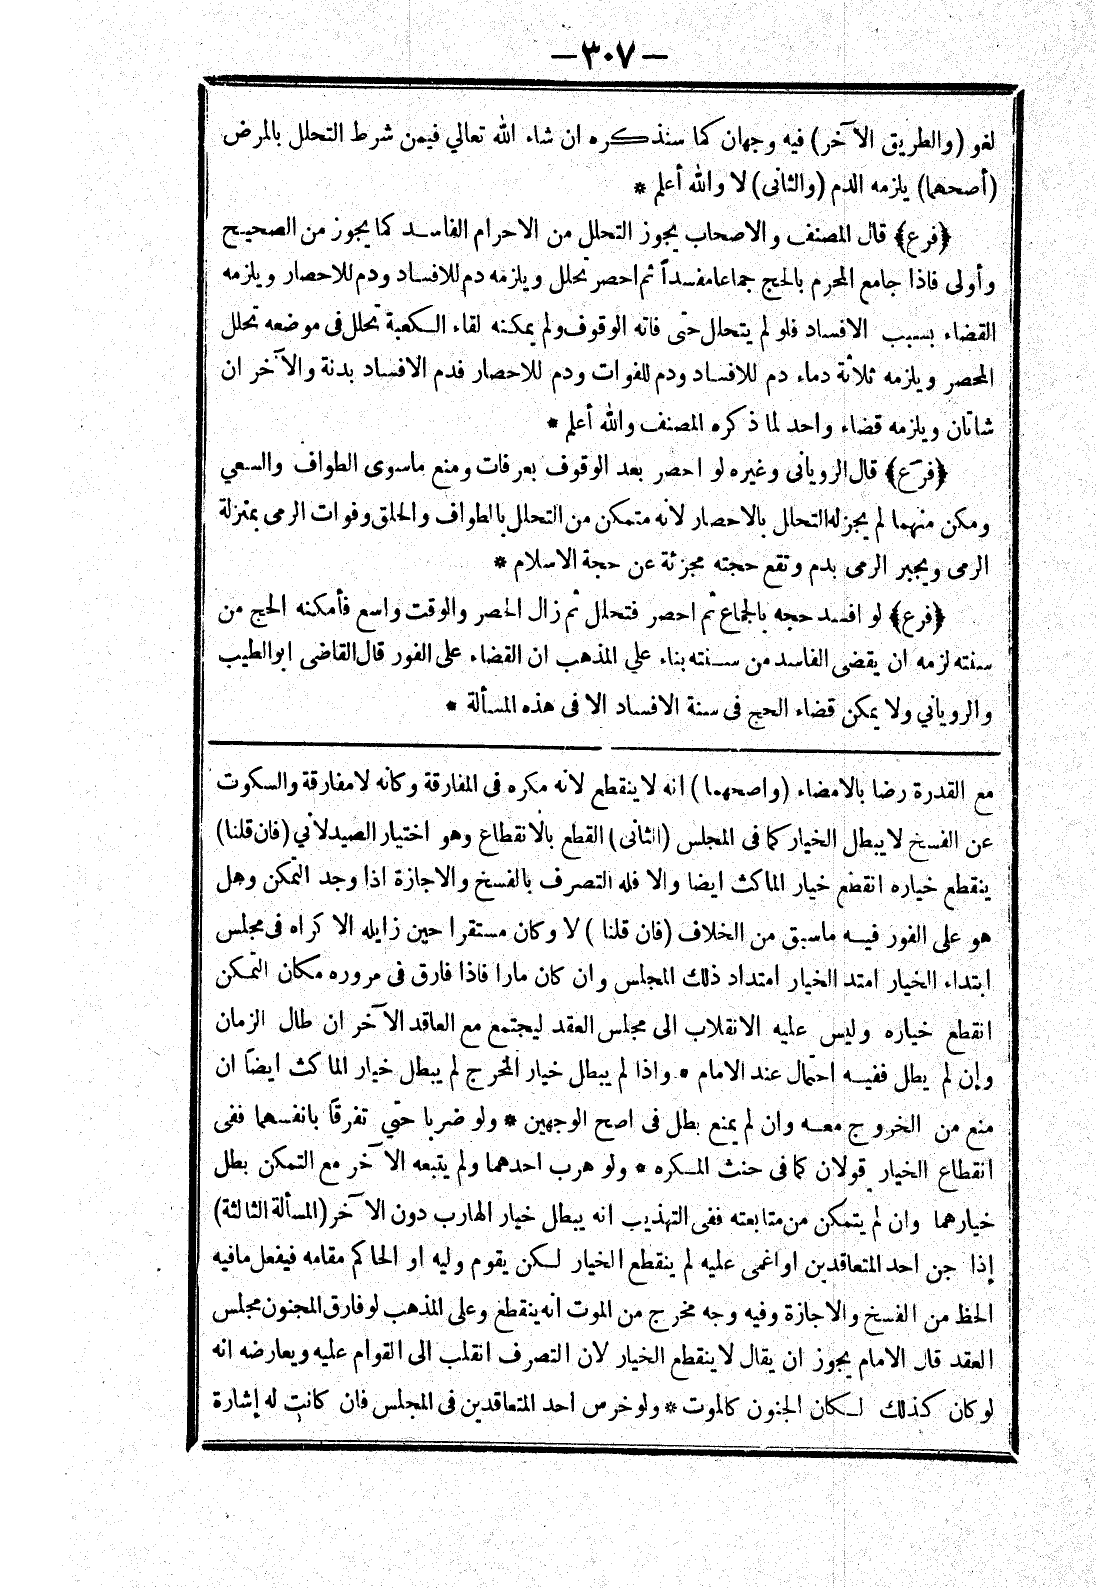 -٣٠٧-
لغو (والطريق الآخر) فيه وجهان كما سنذكره ان شاء الله تعالي فيمن شرط التحلل بالمرض
(أصحهما) يلزمه الدم (والثانى) لا والله أعلم *
﴿فرع﴾ قال المصنف والاصحاب يجوز التحلل من الاحرام الفاسد كما يجوز من الصحيح
وأولى فاذا جامع المحرم بالحج جماعا مفسداً ثم احصر تحلل ويلزمه دم للافساد ودم للاحصار ويلزمه
القضاء بسبب الافساد فلو لم يتحلل حتى فاته الوقوف ولم يمكنه لقاء الكعبة تحلل فى موضعه تحلل
المحصر ويلزمه ثلاثة دماء دم للافساد ودم للفوات ودم للاحصار فدم الافساد بدنة والآخر ان
شاتان ويلزمه قضاء واحد لما ذكره المصنف والله أعلم *
﴿فرع﴾ قال الرويانى وغيره لو احصر بعد الوقوف بعرفات ومنع ماسوى الطواف والسعي
ومكن منهما لم يجزله التحلل بالاحصار لانه متمكن من التحلل بالطواف والحلق وفوات الرمى بمنزلة
الرمى ويجبر الرمى بدم وتقع حجته مجزئة عن حجة الاسلام *
﴿فرع﴾ لو افسد حجه بالجماع ثم احصر فتحلل ثم زال الحصر والوقت واسع فأمكنه الحج من
سنته لزمه ان يقضى الفاسد من سنته بناء علي المذهب ان القضاء على الفور قال القاضى ابو الطيب
والروياني ولا يمكن قضاء الحج فى سنة الافساد الا فى هذه المسألة *
مع القدرة رضا بالامضاء (واصحهما) انه لا ينقطع لانه مكره فى المفارقة وكانه لا مفارقة والسكوت
عن الفسخ لا يبطل الخيار كما فى المجلس (الثانى) القطع بالانقطاع وهو اختيار الصيدلاني (فان قلنا)
ينقطع خياره انقطع خيار الماكث ايضا والا فله التصرف بالفسخ والاجازة اذا وجد التمكن وهل
هو على الفور فيه ماسبق من الخلاف (فان قلنا) لا وكان مستقرا حين زايله الاكراه فى مجلس
ابتداء الخيار امتد الخيار امتداد ذلك المجلس وان كان مارا فاذا فارق فى مروره مكان التمكن
انقطع خياره وليس عليه الانقلاب الى مجلس العقد ليجتمع مع العاقد الآخر ان طال الزمان
وإن لم يطل ففيه احتمال عند الامام * واذا لم يبطل خيار المخرج لم يبطل خيار الماكث ايضاً ان
منع من الخروج معه وان لم يمنع بطل فى اصح الوجهين * ولو ضربا حتي تفرقا بانفسهما ففى
انقطاع الخيار قولان كما فى حنث المكره * ولو هرب احدهما ولم يتبعه الآخر مع التمكن بطل
خيارهما وان لم يتمكن من متابعته ففى التهذيب انه يبطل خيار الهارب دون الآخر (المسألة الثالثة)
إذا جن احد المتعاقدين او اغمى عليه لم ينقطع الخيار لكن يقوم وليه او الحاكم مقامه فيفعل مافيه
الحظ من الفسخ والاجازة وفيه وجه مخرج من الموت انه ينقطع وعلى المذهب لو فارق المجنون مجلس
العقد قال الامام يجوز ان يقال لا ينقطع الخيار لان التصرف انقلب الى القوام عليه ويعارضه انه
لو كان كذلك لكان الجنون كالموت * ولو خرس احد المتعاقدين فى المجلس فان كانت له إشارة